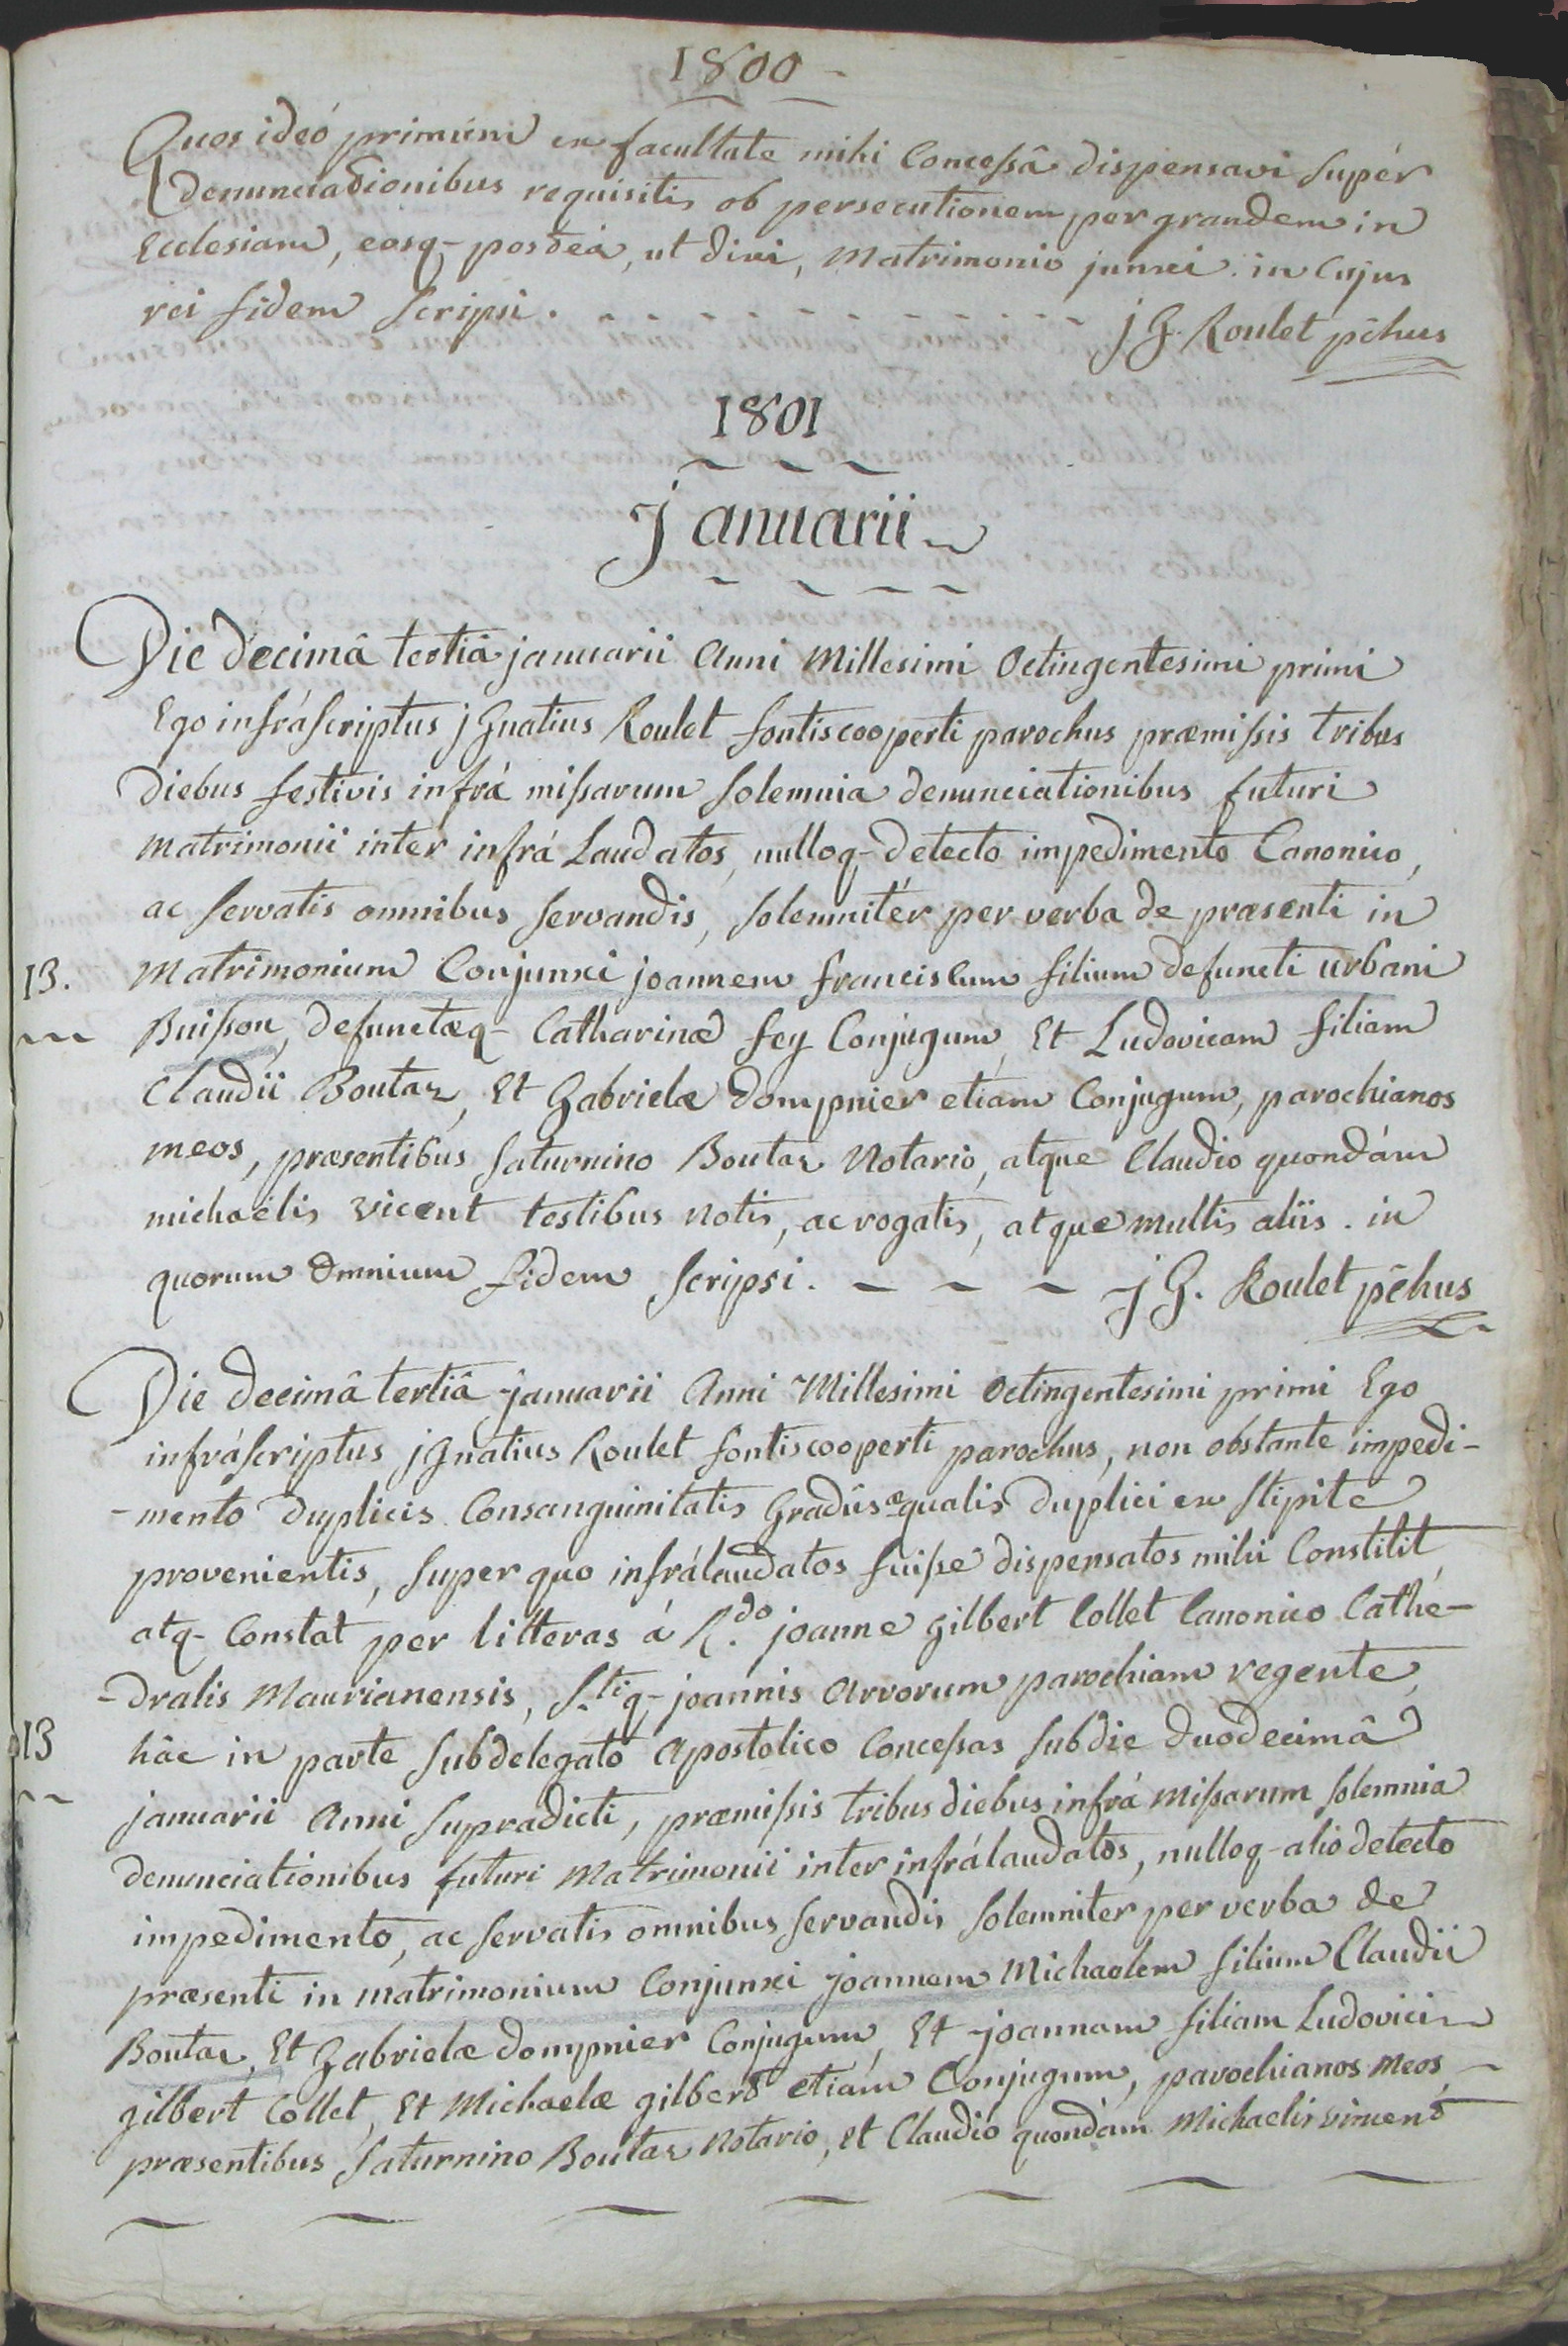 1800 -
Quos ideó primùm ex facultate mihi Concessâ dispensavi supér
denunciationibus requisitis ob persecutionem per grandem in
Ecclesiam, eosq- posteà, ut dixi, Matrimonio junxi. in Cujus
rei fidem scripsi. - - - - - - - - - - - - j G. Roulet pc̄hus
1801
Januarii
Die decimâ tertiâ januarii Anni Millesimi Octingentesimi primi
Ego infráscriptus jGnatius Roulet fontiscooperti parochus præmissis tribus
diebus festivis infrá missarum solemnia denunciationibus futuri
Matrimonii inter infrá Laudatos, nulloq- detecto impedimento Canonico,
ac servatis omnibus servandis, solemnitér per verba de præsenti in
13. Matrimonium Conjunxi joannem franciscum filium defuncti urbani
Buisson, defunctæq- Catharinæ fey Conjugum, Et Ludovicam filiam
Claudii Boutaz, Et Gabrielæ dompnier etiam Conjugum, parochianos
meos, præsentibus Saturnino Boutaz Notario, atque Claudio quondám
michaëlis vicent testibus notis, ac rogatis, atque multis aliis. in
quorum omnium fidem scripsi. - - - j G. Roulet pc̄hus
Die decimâ tertiâ januarii Anni Millesimi Octingentesimi primi Ego
infráscriptus jGnatius Roulet fontiscooperti parochus, non obstante impedi-
-mento duplicis Consanguinitatis Gradûs æqualis duplici ex stipite
provenientis, super quo infrálaudatos fuisse dispensatos mihi Constitit,
atq- Constat per litteras á R.do joanne gilbert Collet Canonico Cathé-
-dralis Maurianensis, S.tiq- joannis Arvorum parochiam regente,
13 hâc in parte subdelegato Apostolico Concessas sub die duodecimâ
januarii Anni supradicti, præmissis tribus diebus infrá Missarum solemnia
denunciationibus futuri Matrimonii inter infrálaudatos, nulloq- alio detecto
impedimento, ac servatis omnibus servandis solemniter per verba de
præsenti in matrimonium Conjunxi joannem Michaelem filium Claudii
Boutaz, Et Gabrielæ dompnier Conjugum, Et joannam filiam Ludovici
gilbert Collet, Et Michaelæ gilbert etiám Conjugum, parochianos Meos,
præsentibus Saturnino Boutaz Notario, et Claudio quondám Michaelis